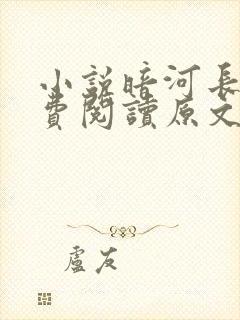 小說暗河長
費閱讀原文
盧友